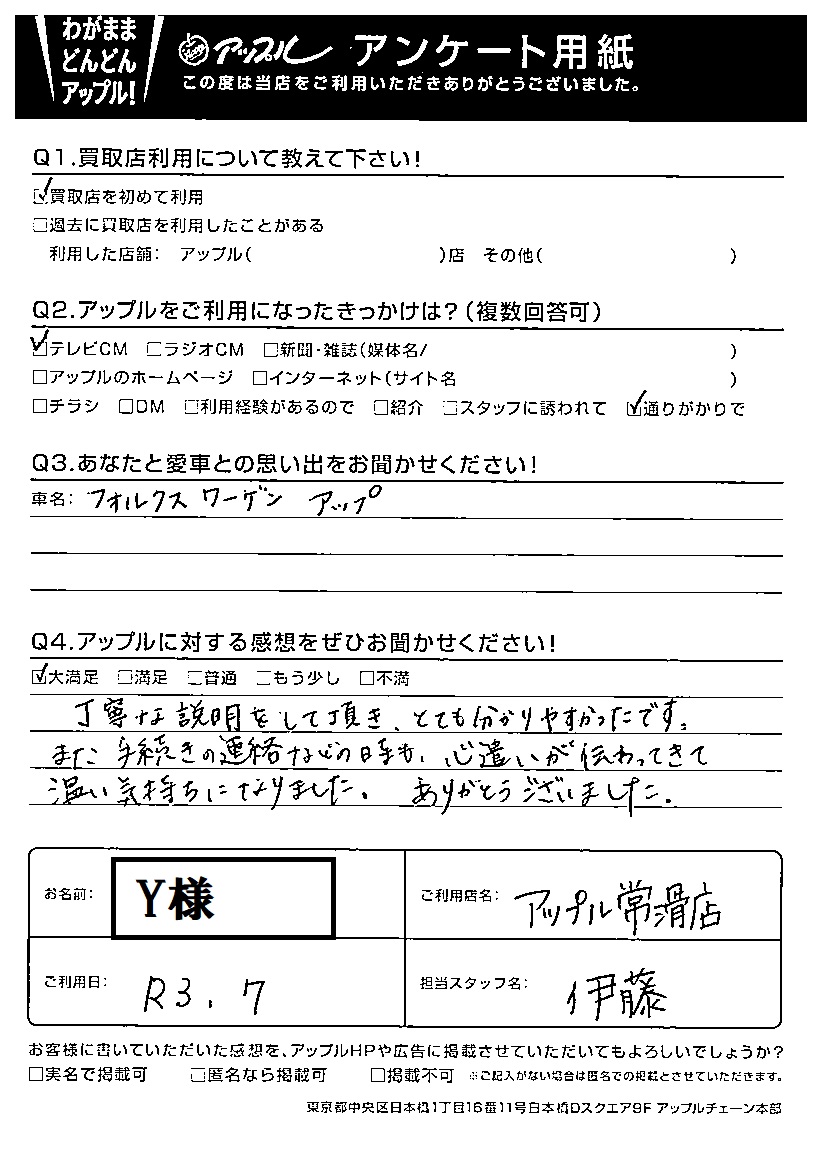 わがまま
どんどん
アップル!
アップル アンケート用紙
この度は当店をご利用いただきありがとうございました。
Q1.買取店利用について教えて下さい!
☑買取店を初めて利用
□過去に買取店を利用したことがある
利用した店舗: アップル( )店 その他( )
Q2.アップルをご利用になったきっかけは?(複数回答可)
☑テレビCM □ラジオCM □新聞・雑誌(媒体名/ )
□アップルのホームページ □インターネット(サイト名 )
□チラシ □DM □利用経験があるので □紹介 □スタッフに誘われて ☑通りがかりで
Q3.あなたと愛車との思い出をお聞かせください!
車名: フォルクスワーゲン アップ
Q4.アップルに対する感想をぜひお聞かせください!
☑大満足 □満足 □普通 □もう少し □不満
丁寧な説明をして頂き、とても分かりやすかったです。
また手続きの連絡などの時も、心遣いが伝わってきて
温い気持ちになりました。 ありがとうございました。
お名前: Y様
ご利用店名: アップル常滑店
ご利用日: R3.7
担当スタッフ名: 伊藤
お客様に書いていただいた感想を、アップルHPや広告に掲載させていただいてもよろしいでしょうか?
□実名で掲載可 □匿名なら掲載可 □掲載不可 ※ご記入がない場合は匿名での掲載とさせていただきます。
東京都中央区日本橋1丁目16番11号日本橋Dスクエア9F アップルチェーン本部